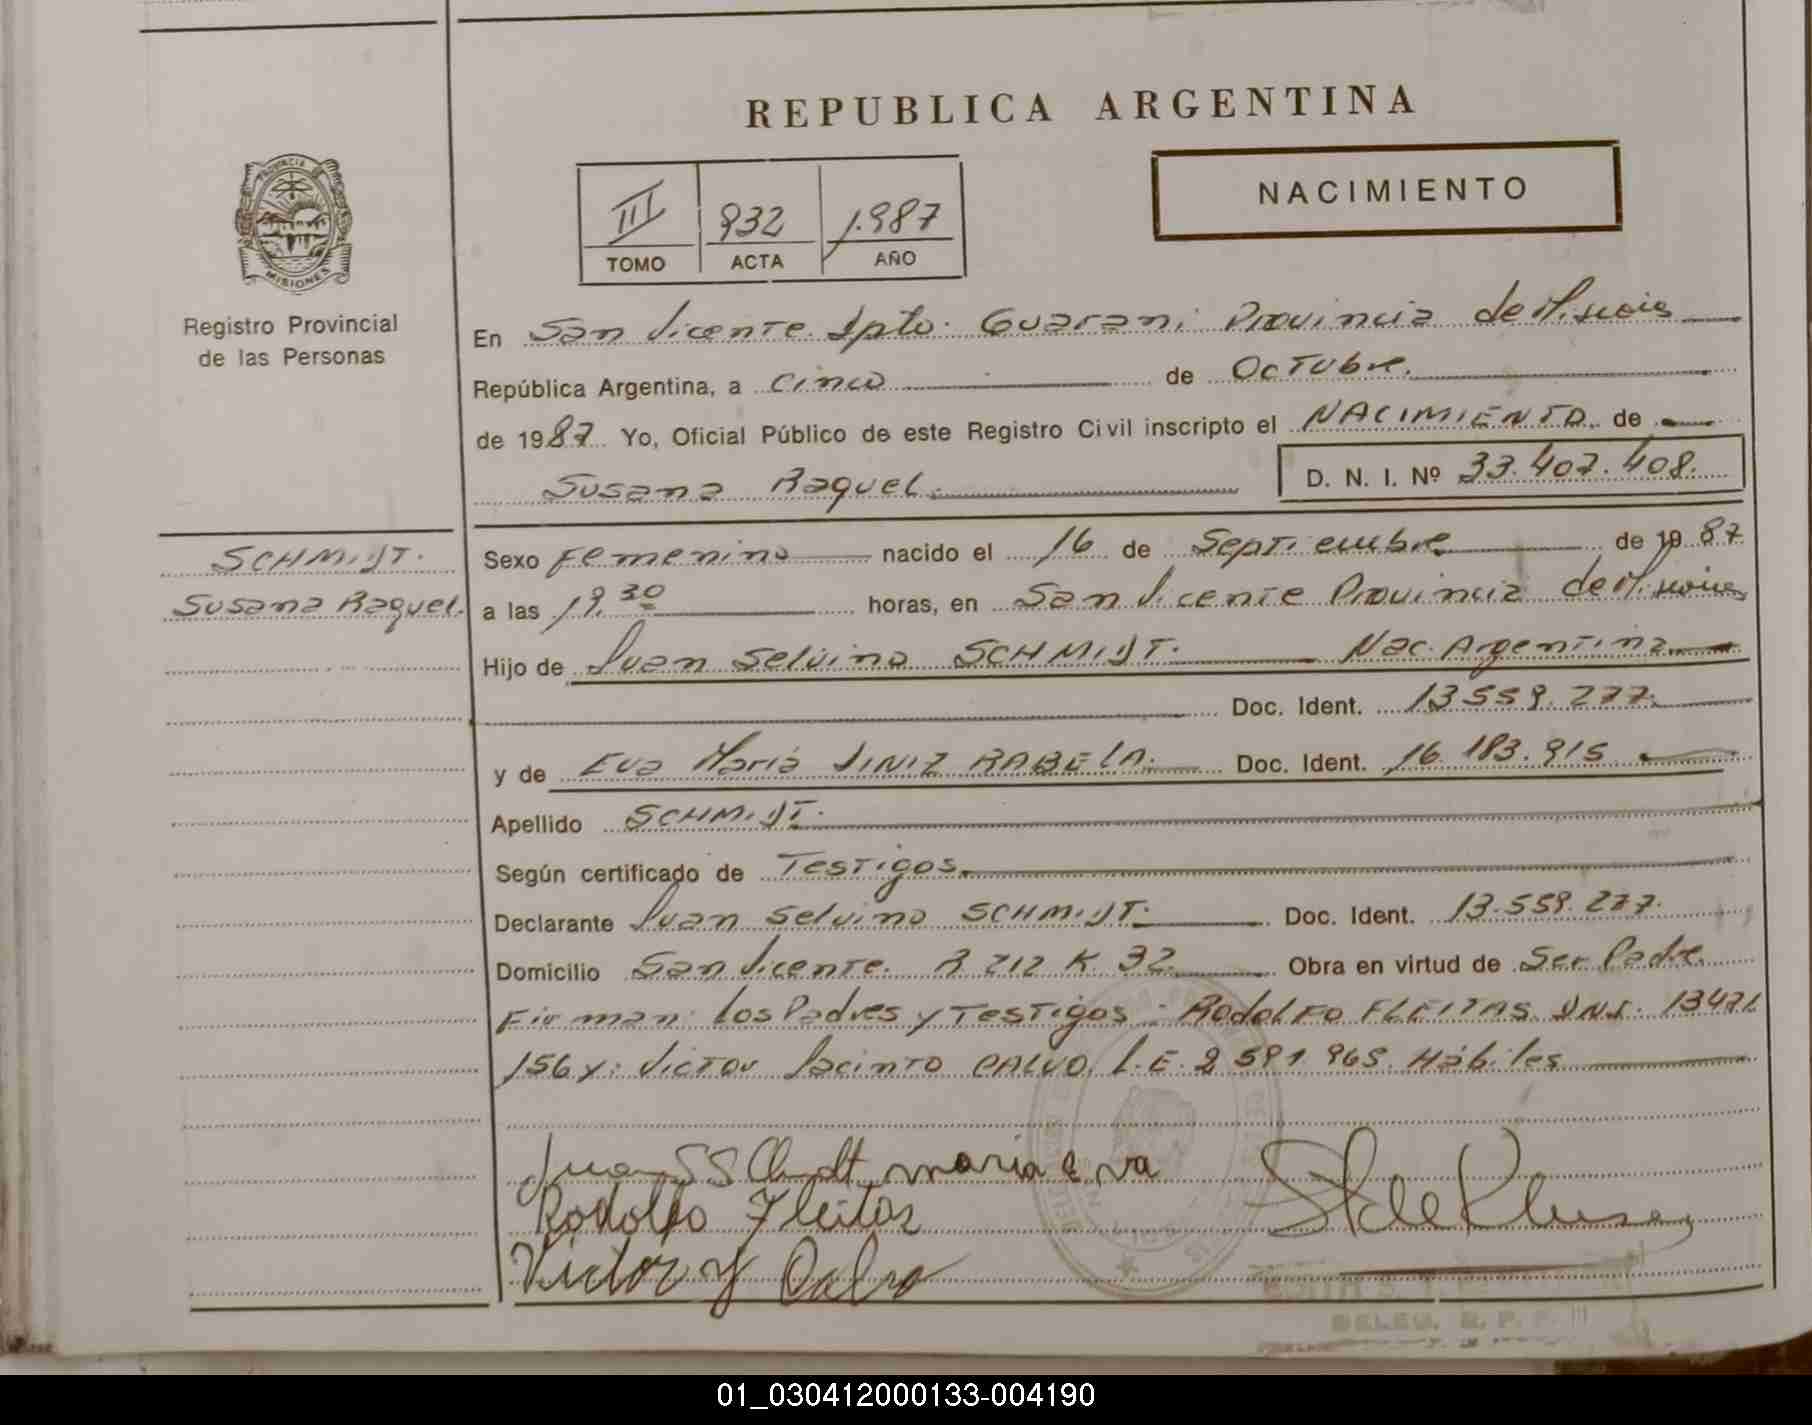 REPUBLICA ARGENTINA
PROVINCIA
MISIONES
Registro Provincial
de las Personas
III 932 1.987
TOMO ACTA AÑO
NACIMIENTO
En San Vicente Dpto. Guarani Provincia de Misiones
República Argentina, a cinco de Octubre.
de 1987 Yo, Oficial Público de este Registro Civil inscripto el NACIMIENTO de
Susana Raquel. D. N. I. Nº 33.407.408.
SCHMIDT.
Susana Raquel.
Sexo Femenino nacido el 16 de Septiembre de 1987
a las 19.30 horas, en San Vicente Provincia de Misiones
Hijo de Juan Selvino SCHMIDT. Nac. Argentina
Doc. Ident. 13.559.277.
y de Eva María DINIZ RABELA. Doc. Ident. 16.183.915
Apellido SCHMIDT.
Según certificado de Testigos.
Declarante Juan Selvino SCHMIDT. Doc. Ident. 13.559.277.
Domicilio San Vicente. R 212 K. 32 Obra en virtud de Ser Padre.
Firman: los Padres y Testigos: Rodolfo FLEITAS DNI. 13471
156 y: Victor Jacinto CALVO. L.E. 2 591 965. Hábiles
Juan S Schmidt maria eva
Rodolfo Fleitas
Victor y Calvo
DELEG. R. P. P.
01_030412000133-004190